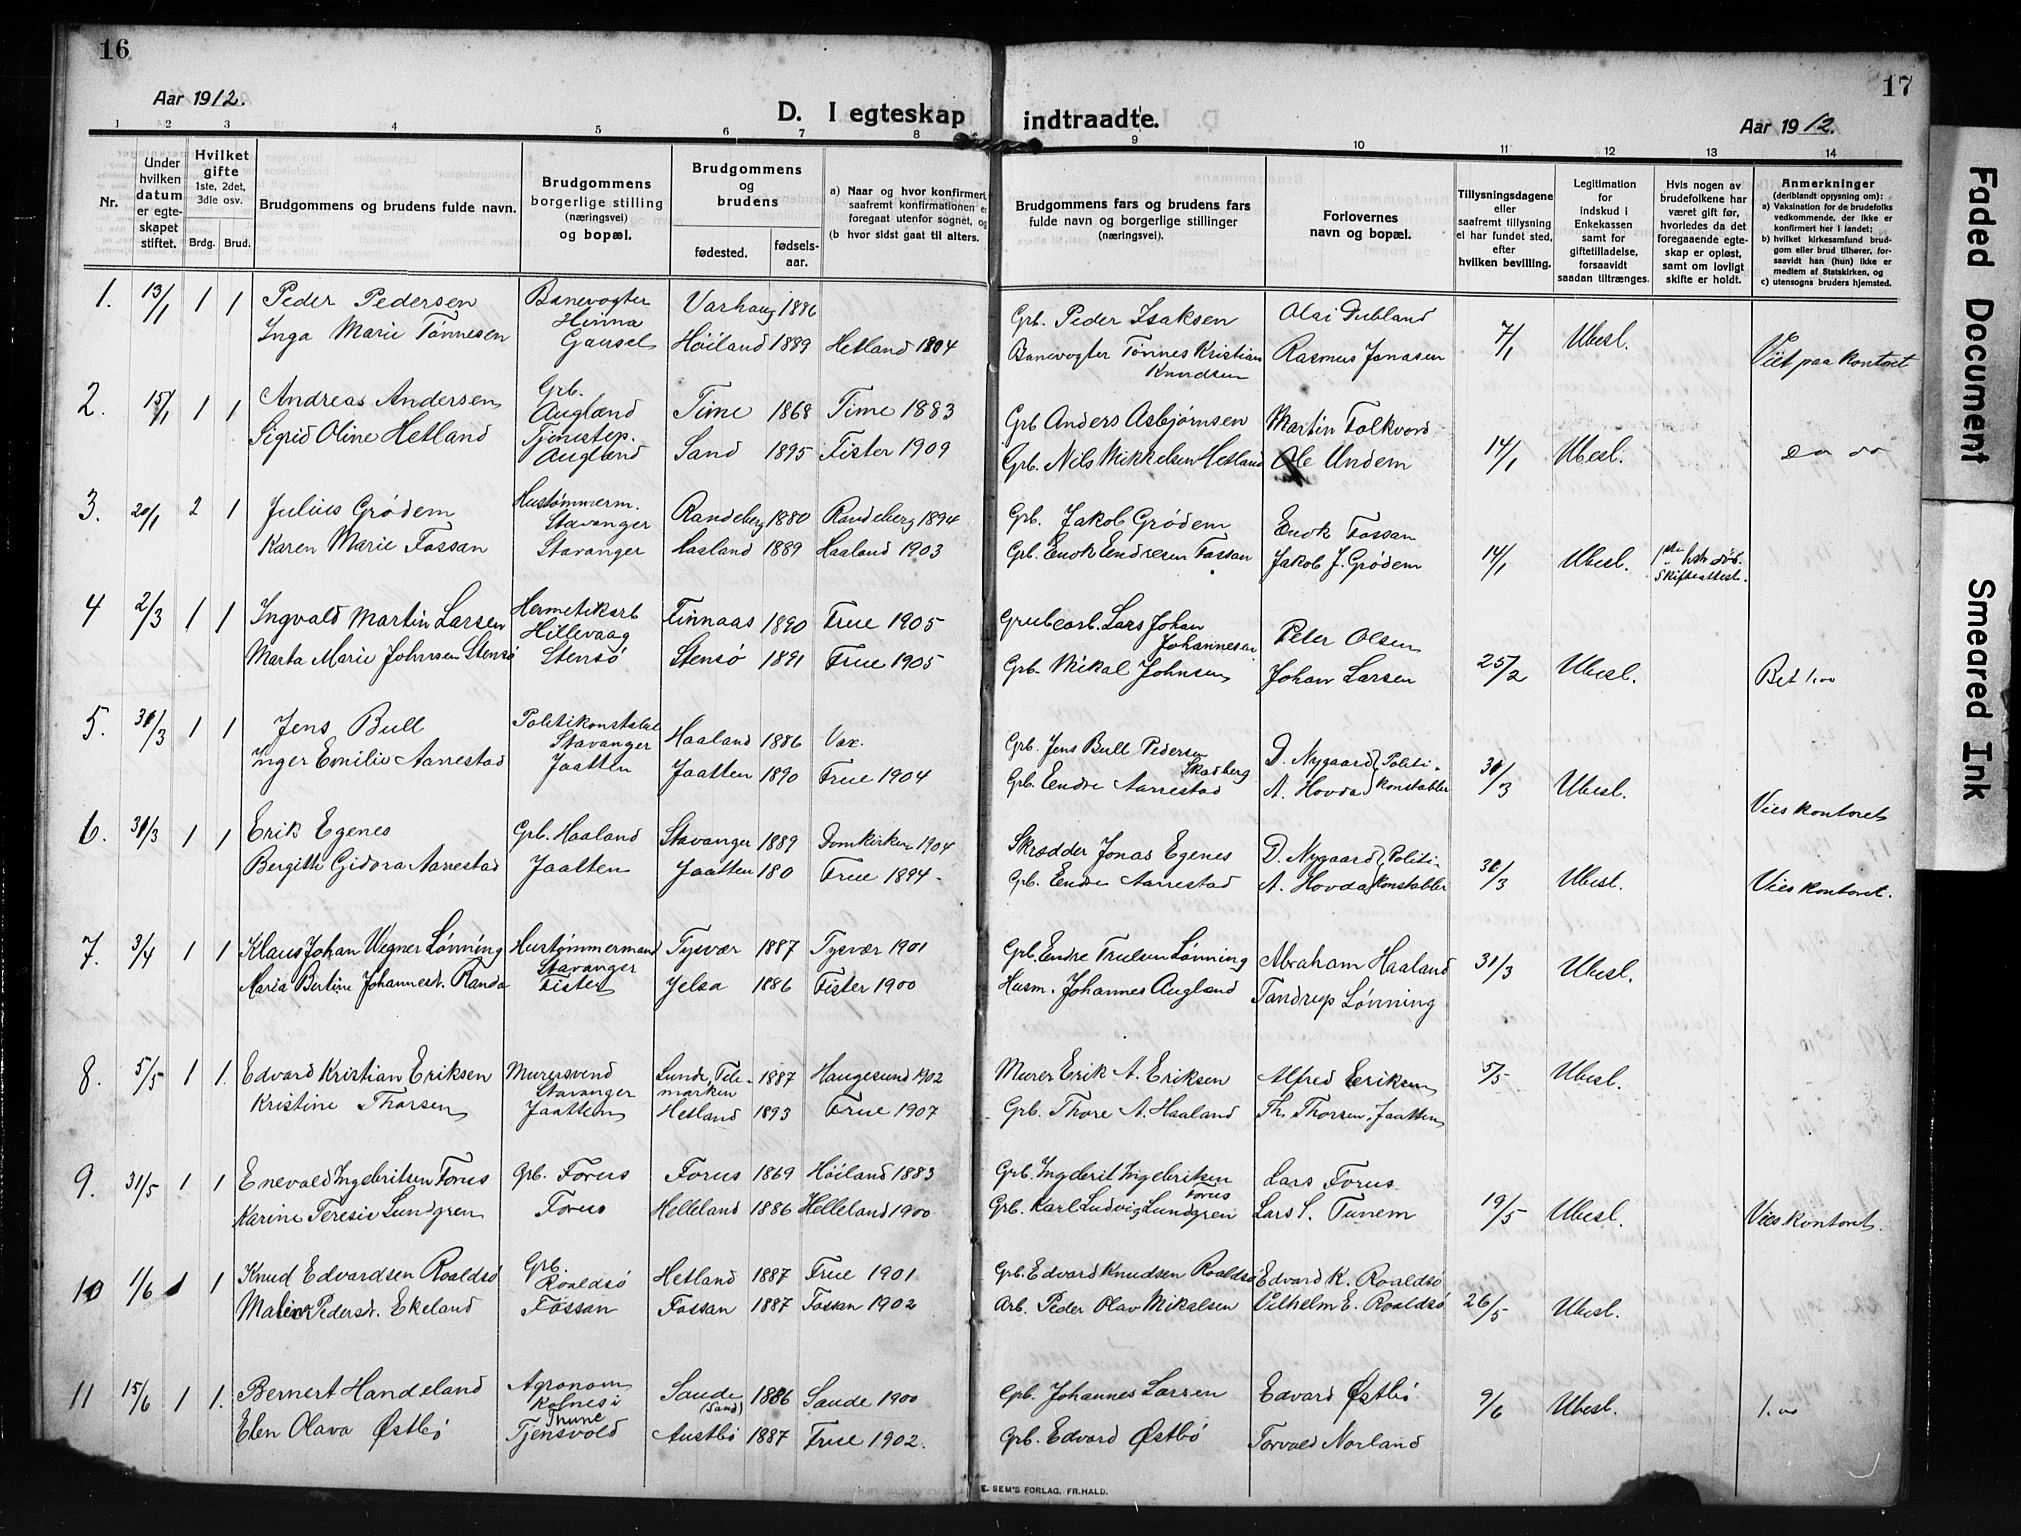 16
17
Aar 1912.
D. I egteskap indtraadte.
Aar 1912.
1 2 3 4 5 6 7 8 9 10 11 12 13 14
Nr.
Under hvilken datum er egte-skapet stiftet.
Hvilket gifte 1ste, 2det, 3die osv.
Brdg. Brud.
Brudgommens og brudens fulde navn.
Brudgommens borgerlige stilling (næringsvei) og bopæl.
Brudgommens og brudens
fødested. fødsels-aar.
a) Naar og hvor konfirmert, saafremt konfirmationen er foregaat utenfor sognet, og
(b hvor sidst gaat til alters.
Brudgommens fars og brudens fars fulde navn og borgerlige stillinger (næringsvei).
Forlovernes navn og bopæl.
Tillysningsdagene eller saafremt tillysning ei har fundet sted, efter hvilken bevilling.
Legitimation for indskud i Enkekassen samt for giftetilladelse, forsaavidt saadan tiltrænges.
Hvis nogen av brudefolkene har været gift før, hvorledes da det foregaaende egte-skap er opløst, samt om lovligt skifte er holdt.
Anmerkninger
(deriblandt opjysning om):
a) Vaksination for de brudefolks vedkommende, der ikke er konfirmert her i landet;
b) hvilket kirkesamfund brud-gom eller brud tilhører, for-saavidt han (hun) ikke er medlem af Statskirken, og
c) utensogns bruders hjemsted.
1. 13/1 1 1 Peder Pedersen Banevogter Hinna Varhaug 1886 Grb. Peder Isaksen Olai Dubland 7/1 Ubesl.
Inga Marie Tønnesen Gausel Høiland 1889 Hetland 1904 Banevogter Tønnes Kristian Knudsen Rasmus Jonasen Viet paa kontoret
2. 15/1 1 1 Andreas Andersen Grb. Auglænd Time 1868 Time 1883 Grb Anders Asbjørnsen Martin Folkvord
Sigrid Oline Hetland Tjenestep. Auglænd Sand 1895 Fister 1909 Grb. Nils Mikkelsen Hetland Ole Undem 14/1 Ubesl. do do
3. 20/1 2 1 Julius Grødem Hustømmerm. Stavanger Randeberg 1880 Randeberg 1894 Grb. Jakob Grødem Enok Fossan
Karen Marie Fossan Stavanger Haaland 1889 Haaland 1903 Grb. Enok Endresen Fossan Jakob J. Grødem 14/1 Ubesl. Skifteattest.
4 2/3 1 1 Ingvald Martin Larsen Hermetikarb Hillevaag Finnaas 1890 Frue 1905 Grubearb. Lars Johan Johannesen Peter Olsen
Marta Marie Johnsen Stensø Stensø Stensø 1891 Frue 1905 Grb. Mikal Johnsen Johan Larsen 25/2 Ubesl. Bet 1.00
5. 31/3 1 1 Jens Bull Politikonstabel Stavanger Haaland 1886 Vax. Grb. Jens Bull Pedersen Skadberg D. Nygaard Politi-
Inger Emilie Aarrestad Jaatten Jaatten 1890 Frue 1904 Grb. Endre Aarrestad A. Hovda konstabler 31/3 Ubesl. Vies kontoret
6. 31/3 1 1 Erik Egenes Grb. Haaland Stavanger 1889 Domkirken 1904 Skrædder Jonas Egenes D. Nygaard Politi-
Bergitte Gidora Aarrestad Jaatten Jaatten 180 Frue 1894. Grb. Endre Aarrestad A. Hovda konstabler 31/3 Ubesl. Vies kontoret.
7. 3/4 1 1 Klaus Johan Wegner Lønning Hustømmermand Stavanger Tysvær 1887 Tysvær 1901 Grb. Endre Truelsen Lønning Abraham Haaland 31/3 Ubesl.
Maria Bertine Johannesd. Randa Fister Jelsa 1886 Fister 1900 Husm. Johannes Augland Tandrup Lønning
8. 5/5 1 1. Edvard Kristian Eriksen Murersvend Stavanger Lunde, Tele-marken 1887 Haugesund 1902 Murer Erik A. Eriksen Alfred Eriksen 5/5 Ubesl.
Kristine Thorsen Jaatten Hetland 1893 Frue 1907 Grb. Thore A. Haaland Th. Thorsen, Jaatten
9. 31/5 1 1 Enevald Ingebritsen Forus Grb. Forus Forus 1869 Høiland 1883 Grb. Ingebrit Ingebritsen Forus Lars Forus.
Karine Teresie Lundgren Forus Helleland 1886 Helleland 1900 Grb. Karl Ludvig Lundgren Lars S. Tunem 19/5 Ubesl. Vies kontoret.
10 1/6 1 1 Knud Edvardsen Roaldsø Grb. Roaldsø Hetland 1887 Frue 1901 Grb. Edvard Knudsen Roaldsø Edvard K. Roaldsø
Malene Pedersd. Ekeland Fossan Fossan 1887 Fossan 1902 Arb. Peder Olav Mikalsen Vilhelm E. Roaldsø 26/5 Ubesl.
11 15/6 1 1. Bernert Handeland Agronom Kolnes i Thune Saude (Sand) 1886 Saude 1900 Grb. Johannes Larsen Edvard Østbø 9/6 Ubesl. 1.00
Elen Olava Østbø Tjensvold Austbø 1887 Frue 1902. Grb. Edvard Østbø Torvald Norland
E. SEM'S FORLAG. FR.HALD.
Faded Document
Smeared Ink